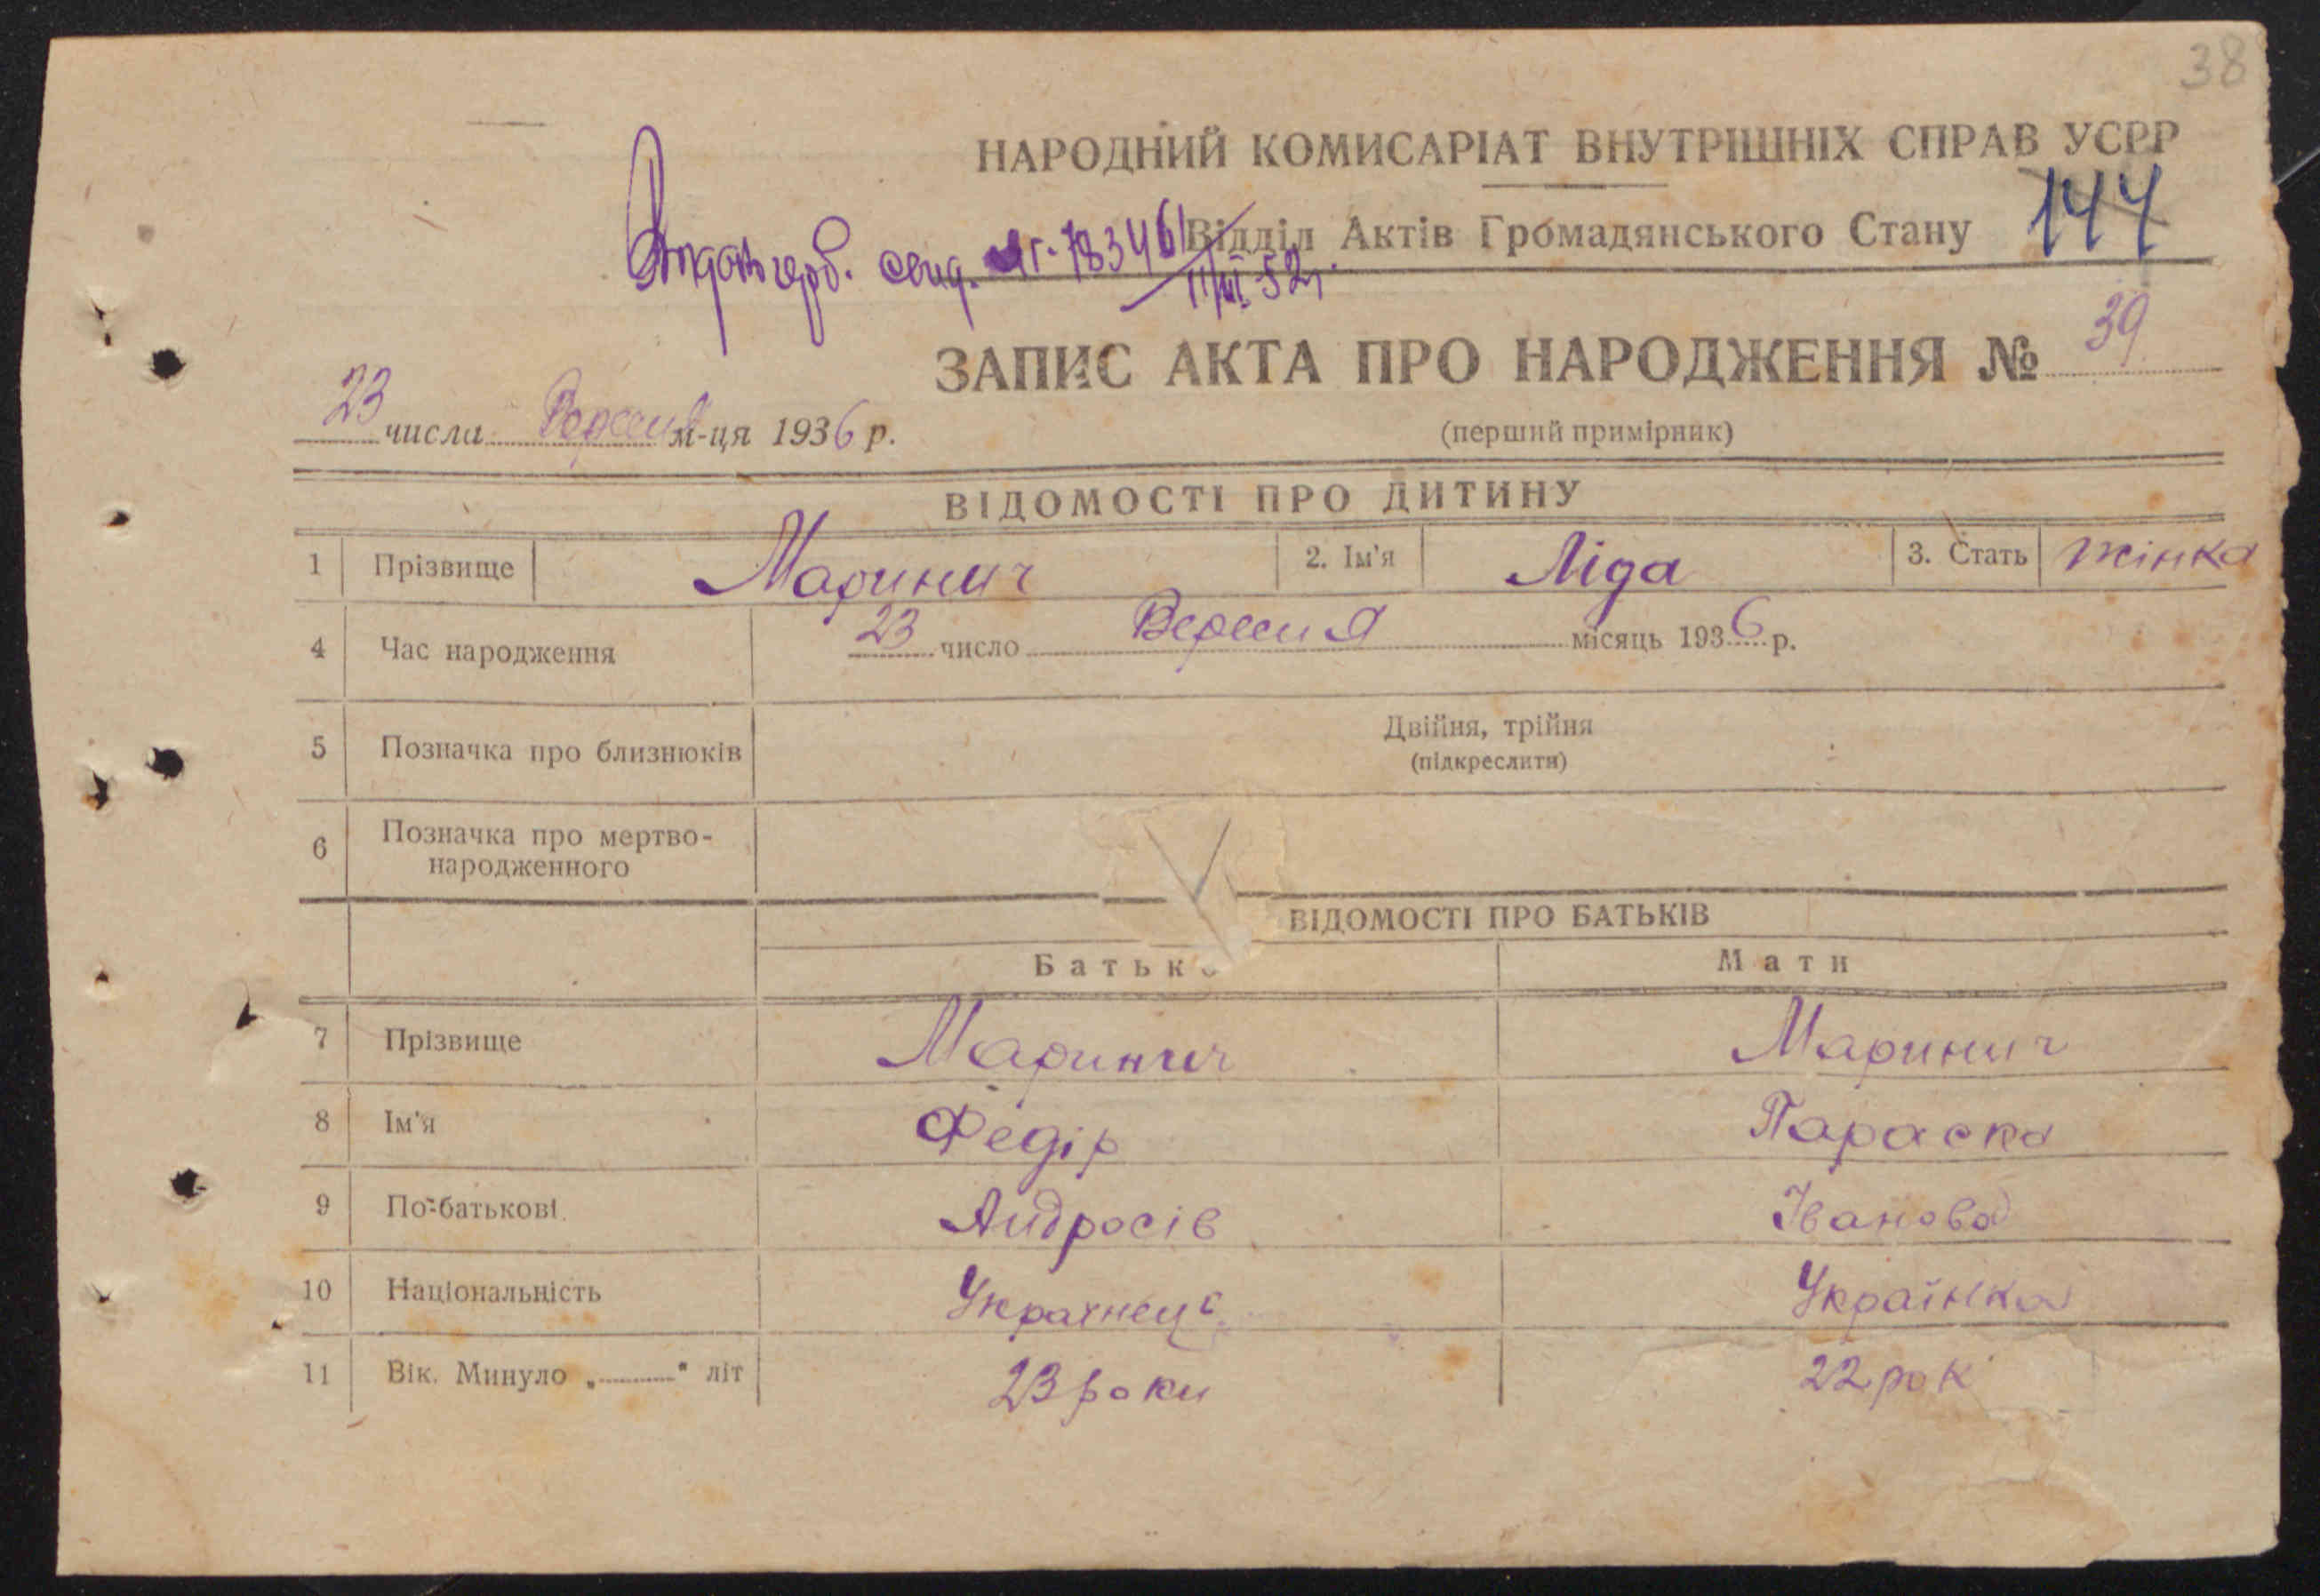 38
НАРОДНИЙ КОМИСАРІАТ ВНУТРІШНІХ СПРАВ УСРР
Відділ Актів Громадянського Стану 144
герб. свид. 783461
11/III-52г.
ЗАПИС АКТА ПРО НАРОДЖЕННЯ № 39
23 числа Вересня м-ця 1936 р.
(перший примірник)
ВІДОМОСТІ ПРО ДИТИНУ
1 Прізвище Маринич 2. Ім'я Ліда 3. Стать жінка
4 Час народження 23 число Вересня місяць 1936 р.
5 Позначка про близнюків Двійня, трійня
(підкреслити)
6 Позначка про мертво-
народженного
ВІДОМОСТІ ПРО БАТЬКІВ
Батько Мати
7 Прізвище Маринич Маринич
8 Ім'я Федір Параска
9 По-батькові Андросів Іванова
10 Національність Украінець Українка
11 Вік. Минуло „ " літ 23 роки 22 рок